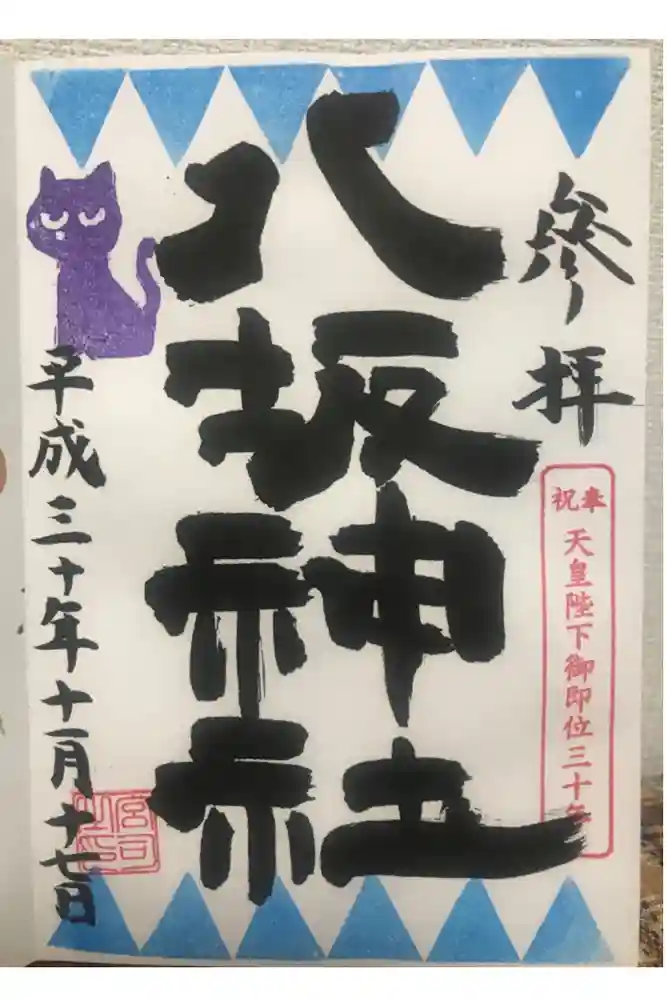 參拝
奉祝
天皇陛下御即位三十年
八坂神社
平成三十年十一月十七日
宮司之印